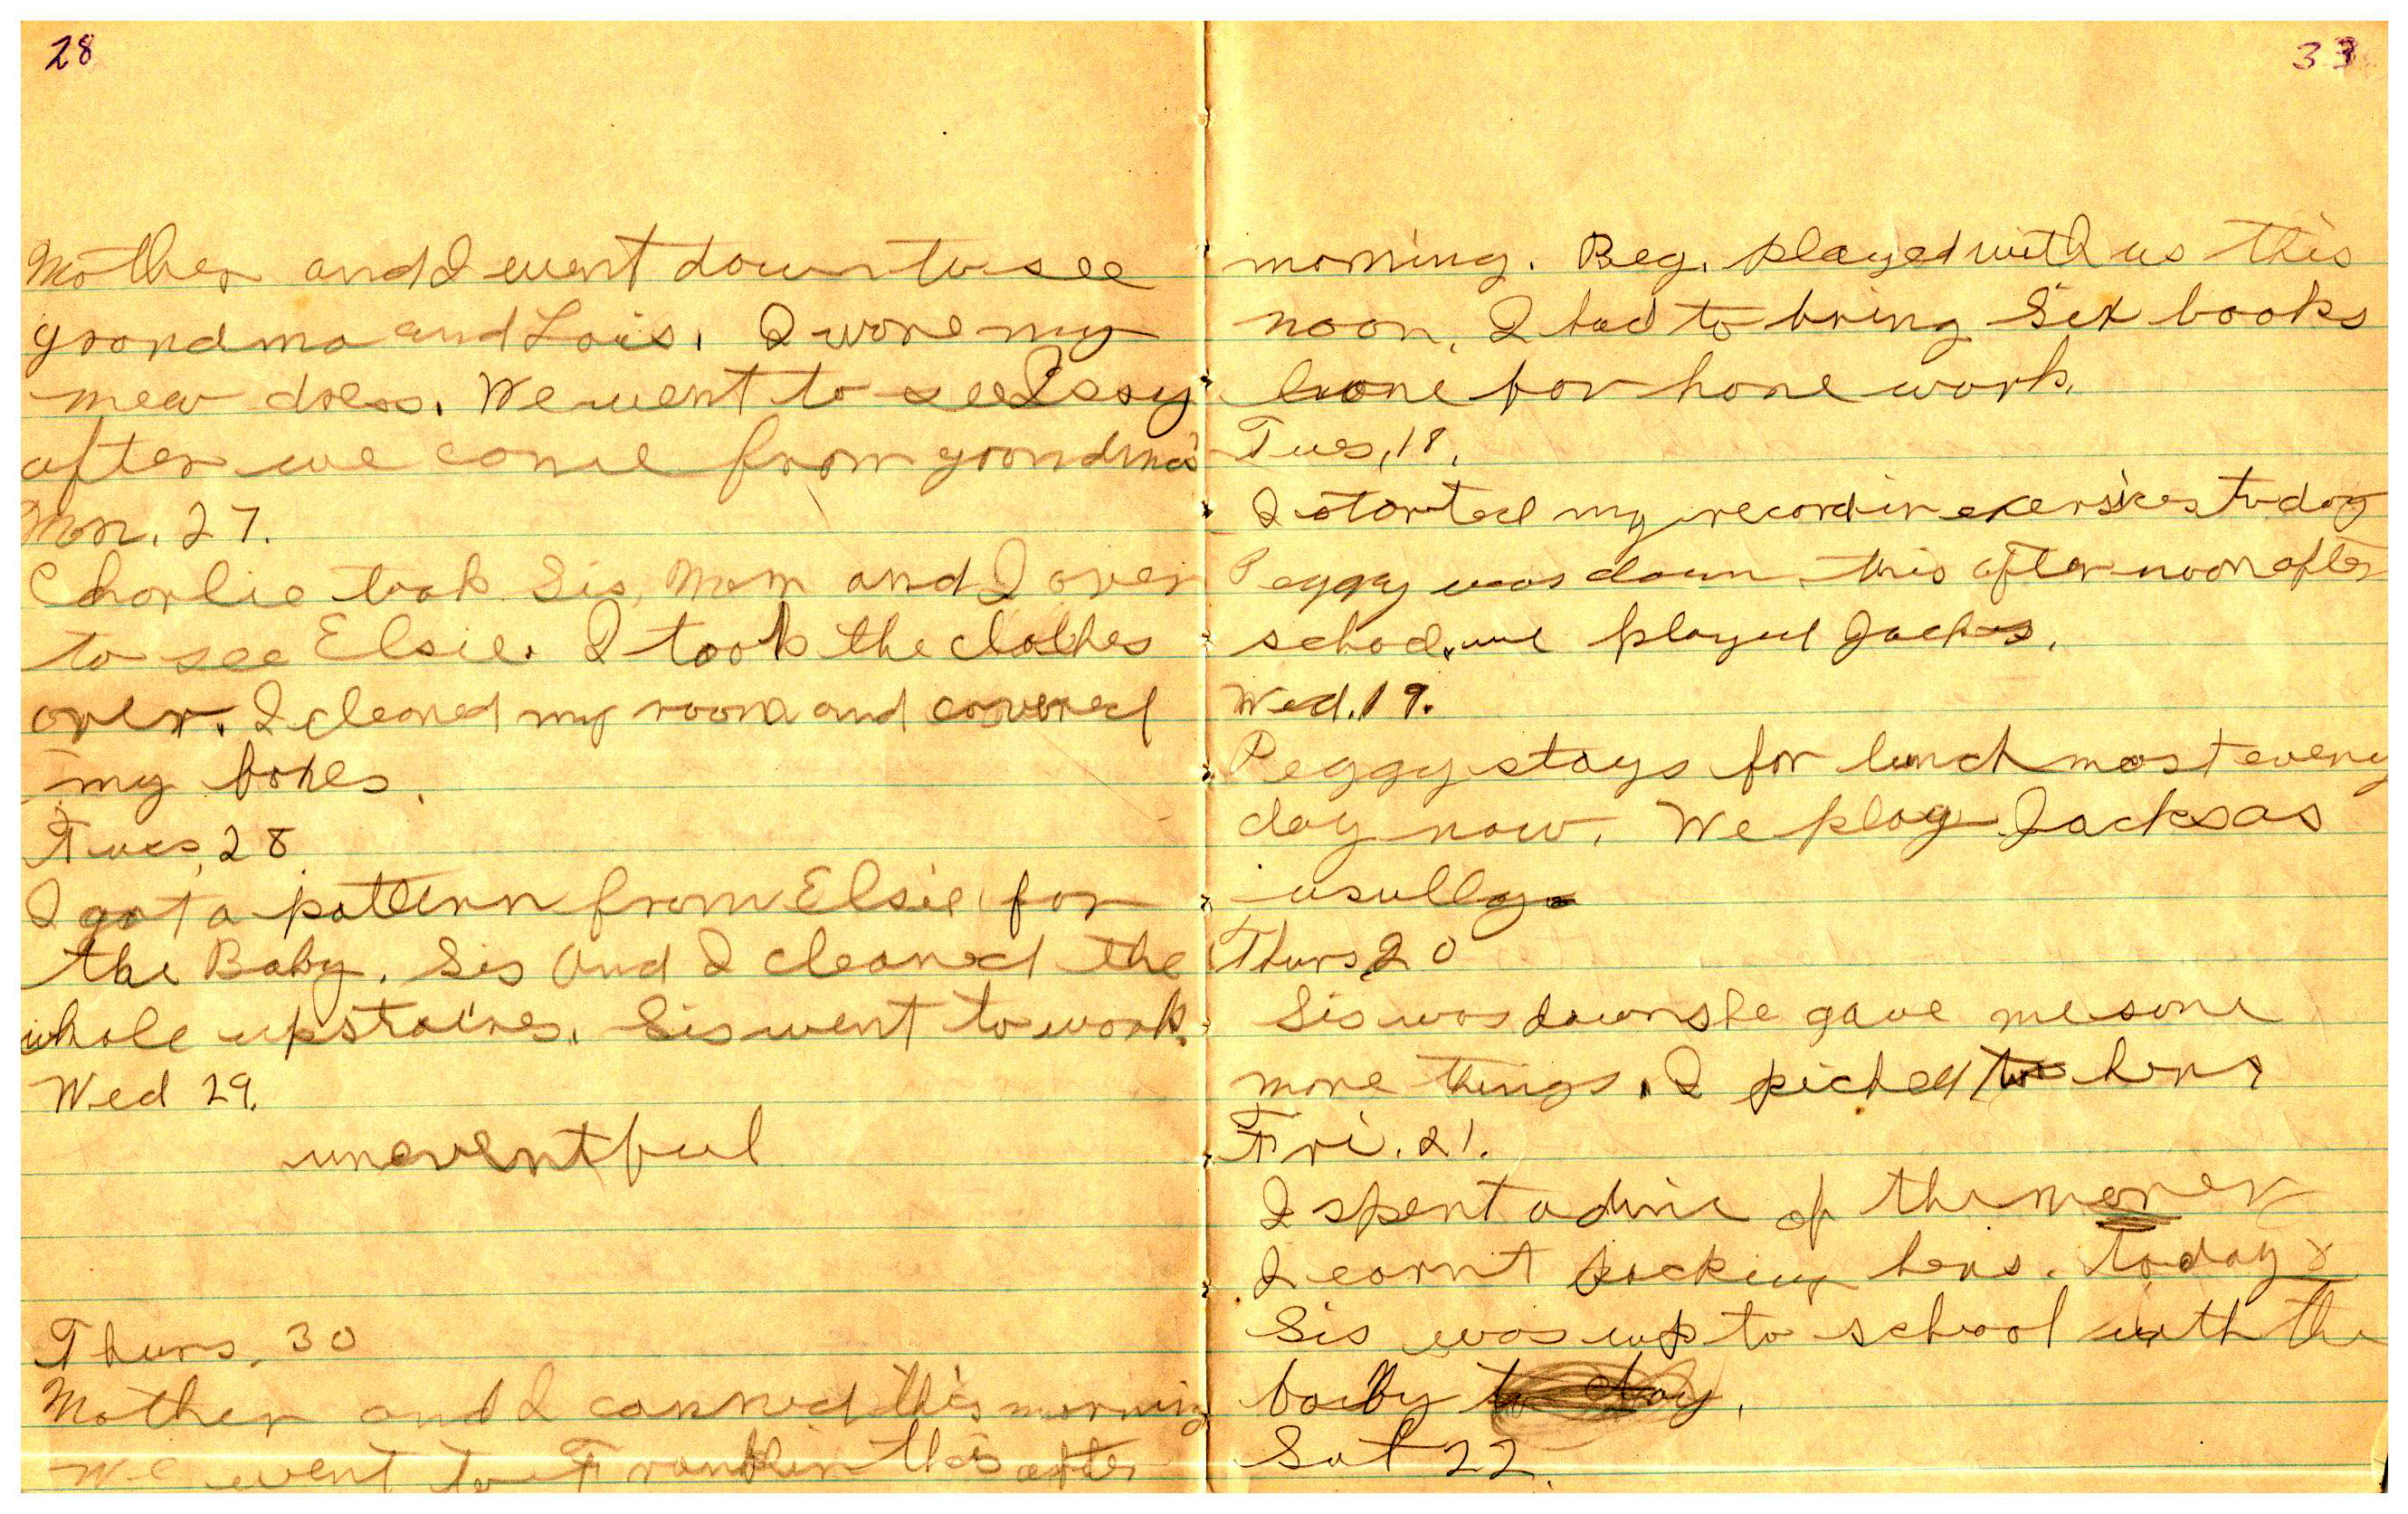 28
Mother and I went down to see
grandma and Lois. I wore my
new dress. We went to see
after we come from grandma's
Mon. 27.
Charlie took Sis, Mom and I over
to see Elsie. I took the clothes
over. I cleaned my room and covered
my boxes.
Tues, 28
I got a pattern from Elsie for
the Baby. Sis and I cleaned the
whole upstaires. Sis went to work.
Wed 29.
uneventful
Thurs, 30
Mother and I canned this morning
We went to Franklin this after
33
morning. Peg. played with us this
noon. I had to bring Six books
home for home work.
Tues, 18.
I started my recordin exersises today
Peggy was down this after noon after
school. we played Jacks.
Wed. 19.
Peggy stays for lunch most every
day now. We play Jacks as
usully
Thurs 20
Sis was down she gave me some
more things. I picked hens
Fri. 21.
I spent a dime of the money
I earnt picking hens. today
Sis was up to school with the
baby to day.
Sat 22.